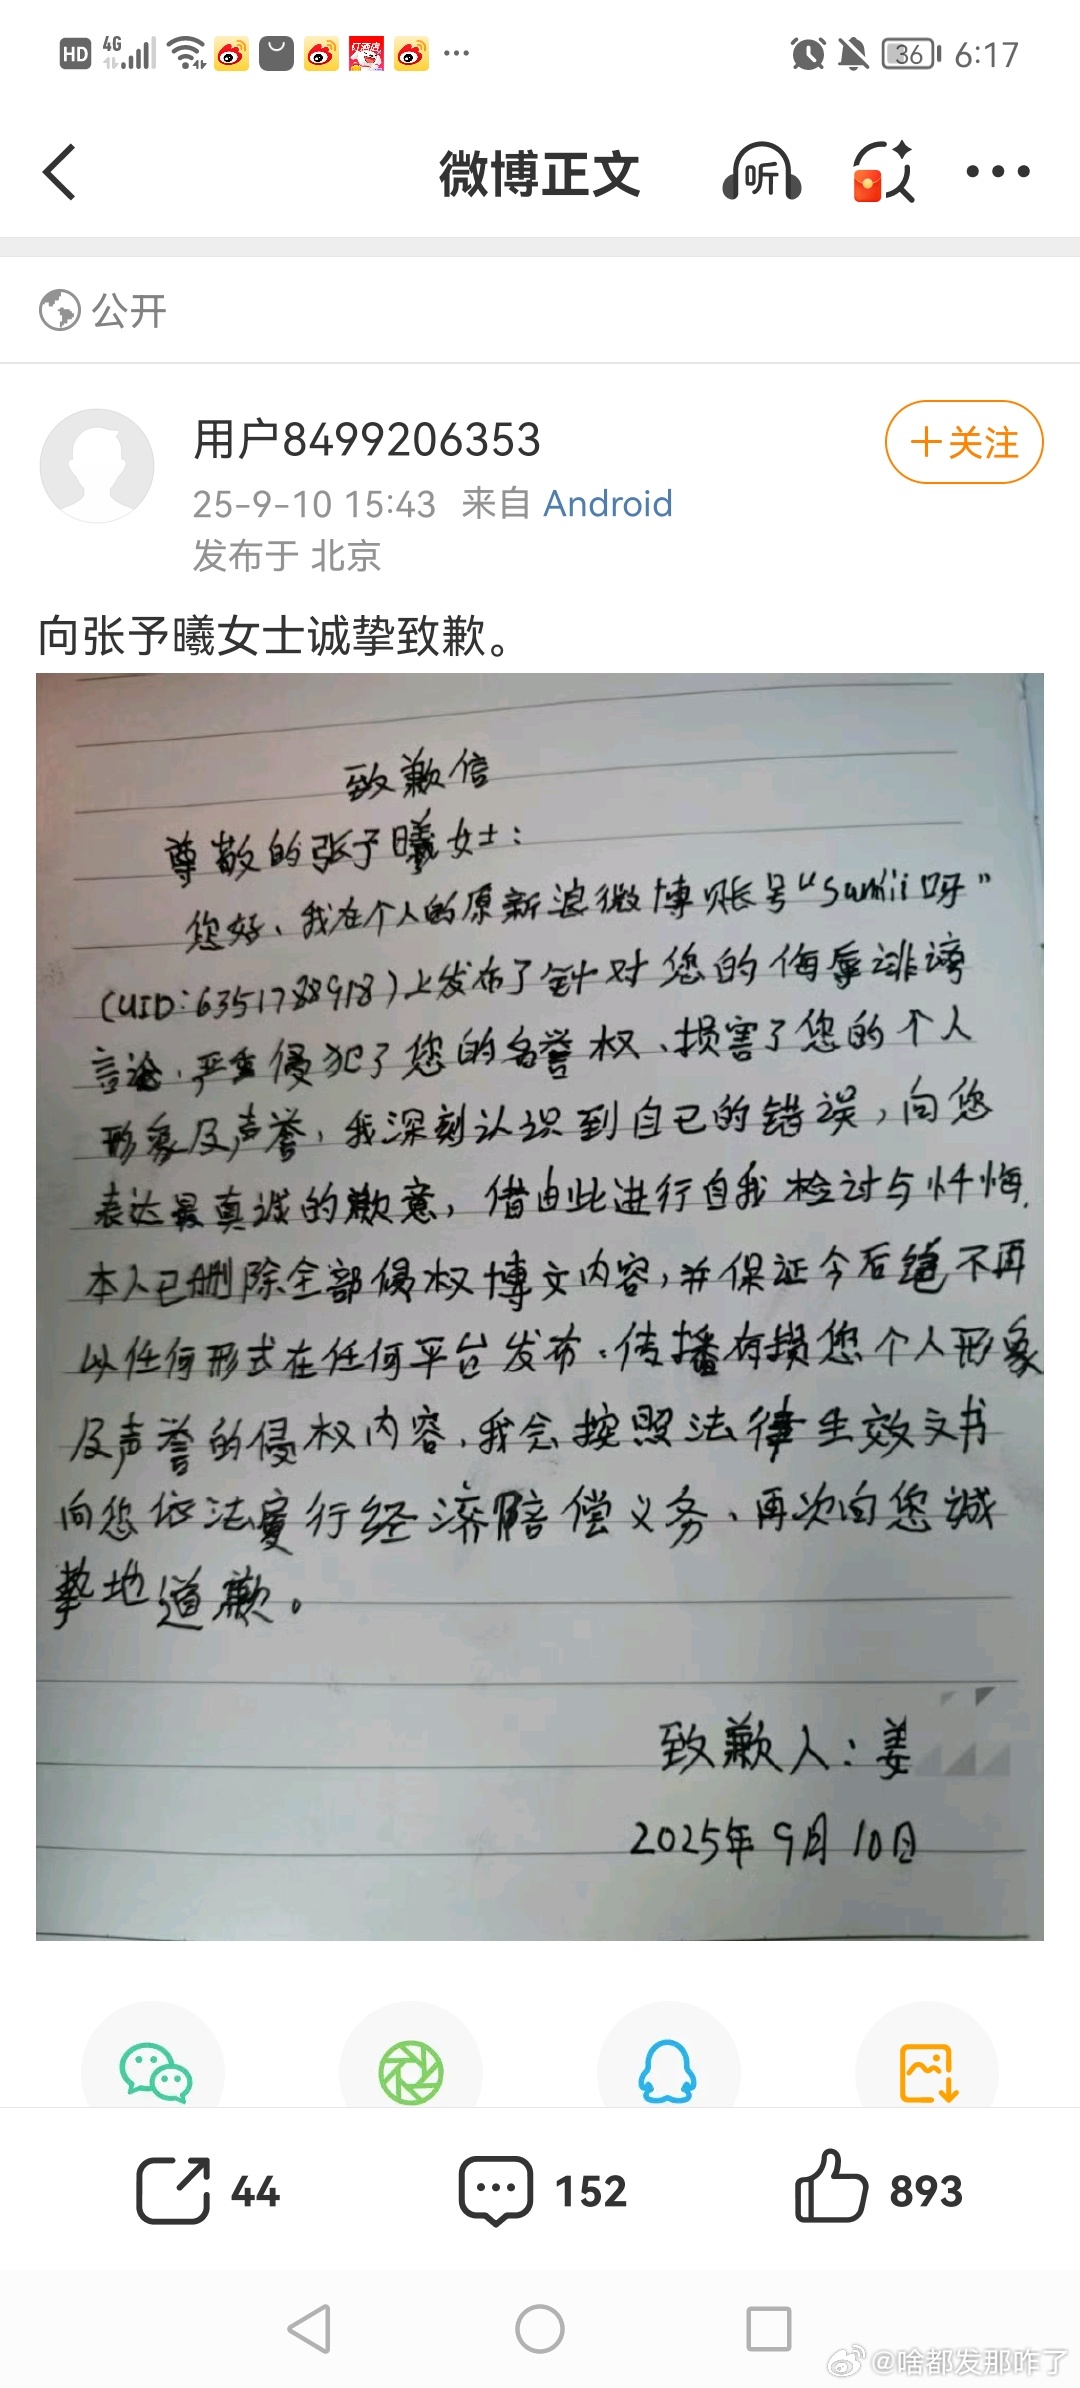 HD 4G 36 6:17
微博正文 听
公开
用户8499206353
+关注
25-9-10 15:43 来自 Android
发布于 北京
向张予曦女士诚挚致歉。
致歉信
尊敬的张予曦女士：
您好、我在个人的原新浪微博账号“Sumii呀”
(UID:6351788918)上发布了针对您的侮辱诽谤
言论、严重侵犯了您的名誉权、损害了您的个人
形象及声誉，我深刻认识到自己的错误，向您
表达最真诚的歉意，借由此进行自我检讨与忏悔.
本人已删除全部侵权博文内容，并保证今后绝不再
以任何形式在任何平台发布、传播有损您个人形象
及声誉的侵权内容、我会按照法律生效文书
向您依法履行经济赔偿义务、再次向您诚
挚地道歉。
致歉人：姜
2025年9月10日
44 152 893
@啥都发那咋了